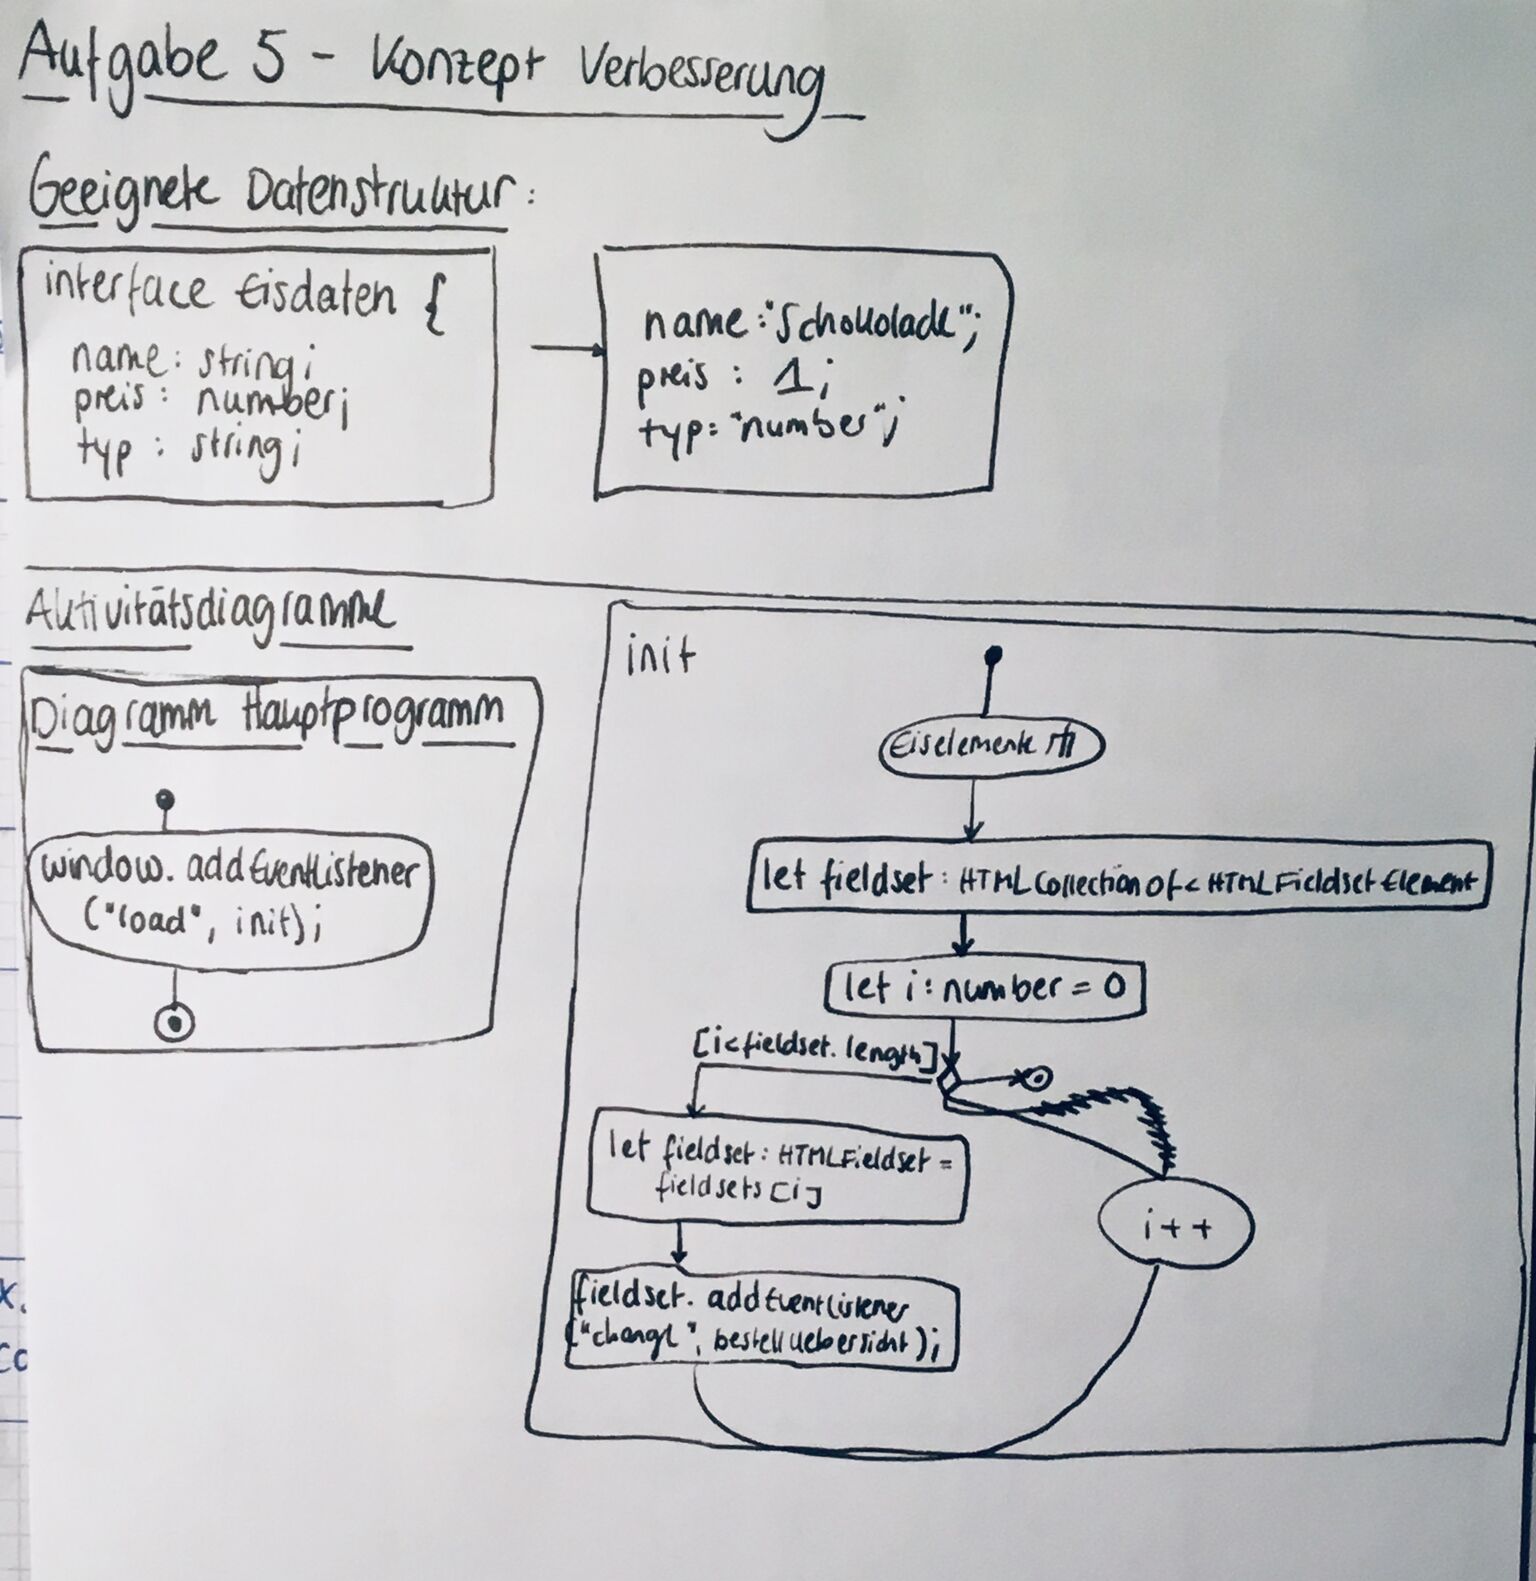 Aufgabe 5 - Konzept Verbesserung
Geeignete Datenstruktur:
interface Eisdaten {
name: string;
preis: number;
typ: string;
name: "Schokolade";
preis: 1;
typ: "number";
Aktivitätsdiagramme
Diagramm Hauptprogramm
window.addEventListener
("load", init);
init
Eiselemente
let fieldset: HTMLCollectionOf<HTMLFieldsetElement
let i: number = 0
[i<fieldset.length]
let fieldset: HTMLFieldset =
fieldsets[i]
i++
fieldset.addEventListener
("change", bestelluebersicht);
x.